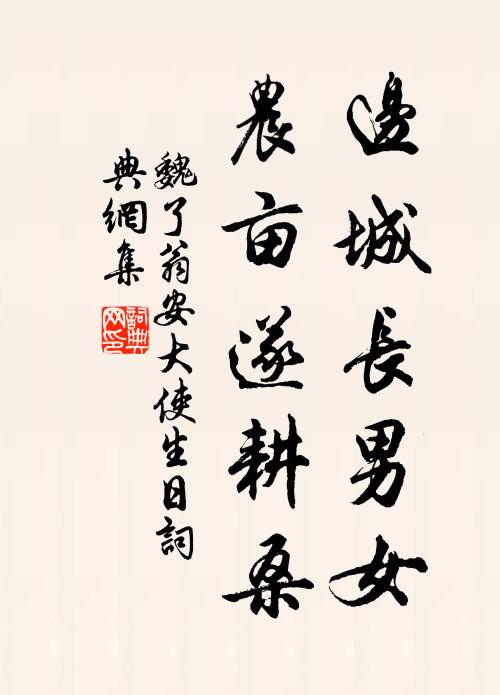 邊城長男女
農亩遂耕桑
魏了翁安大使生日詞
典網集
詞典网印